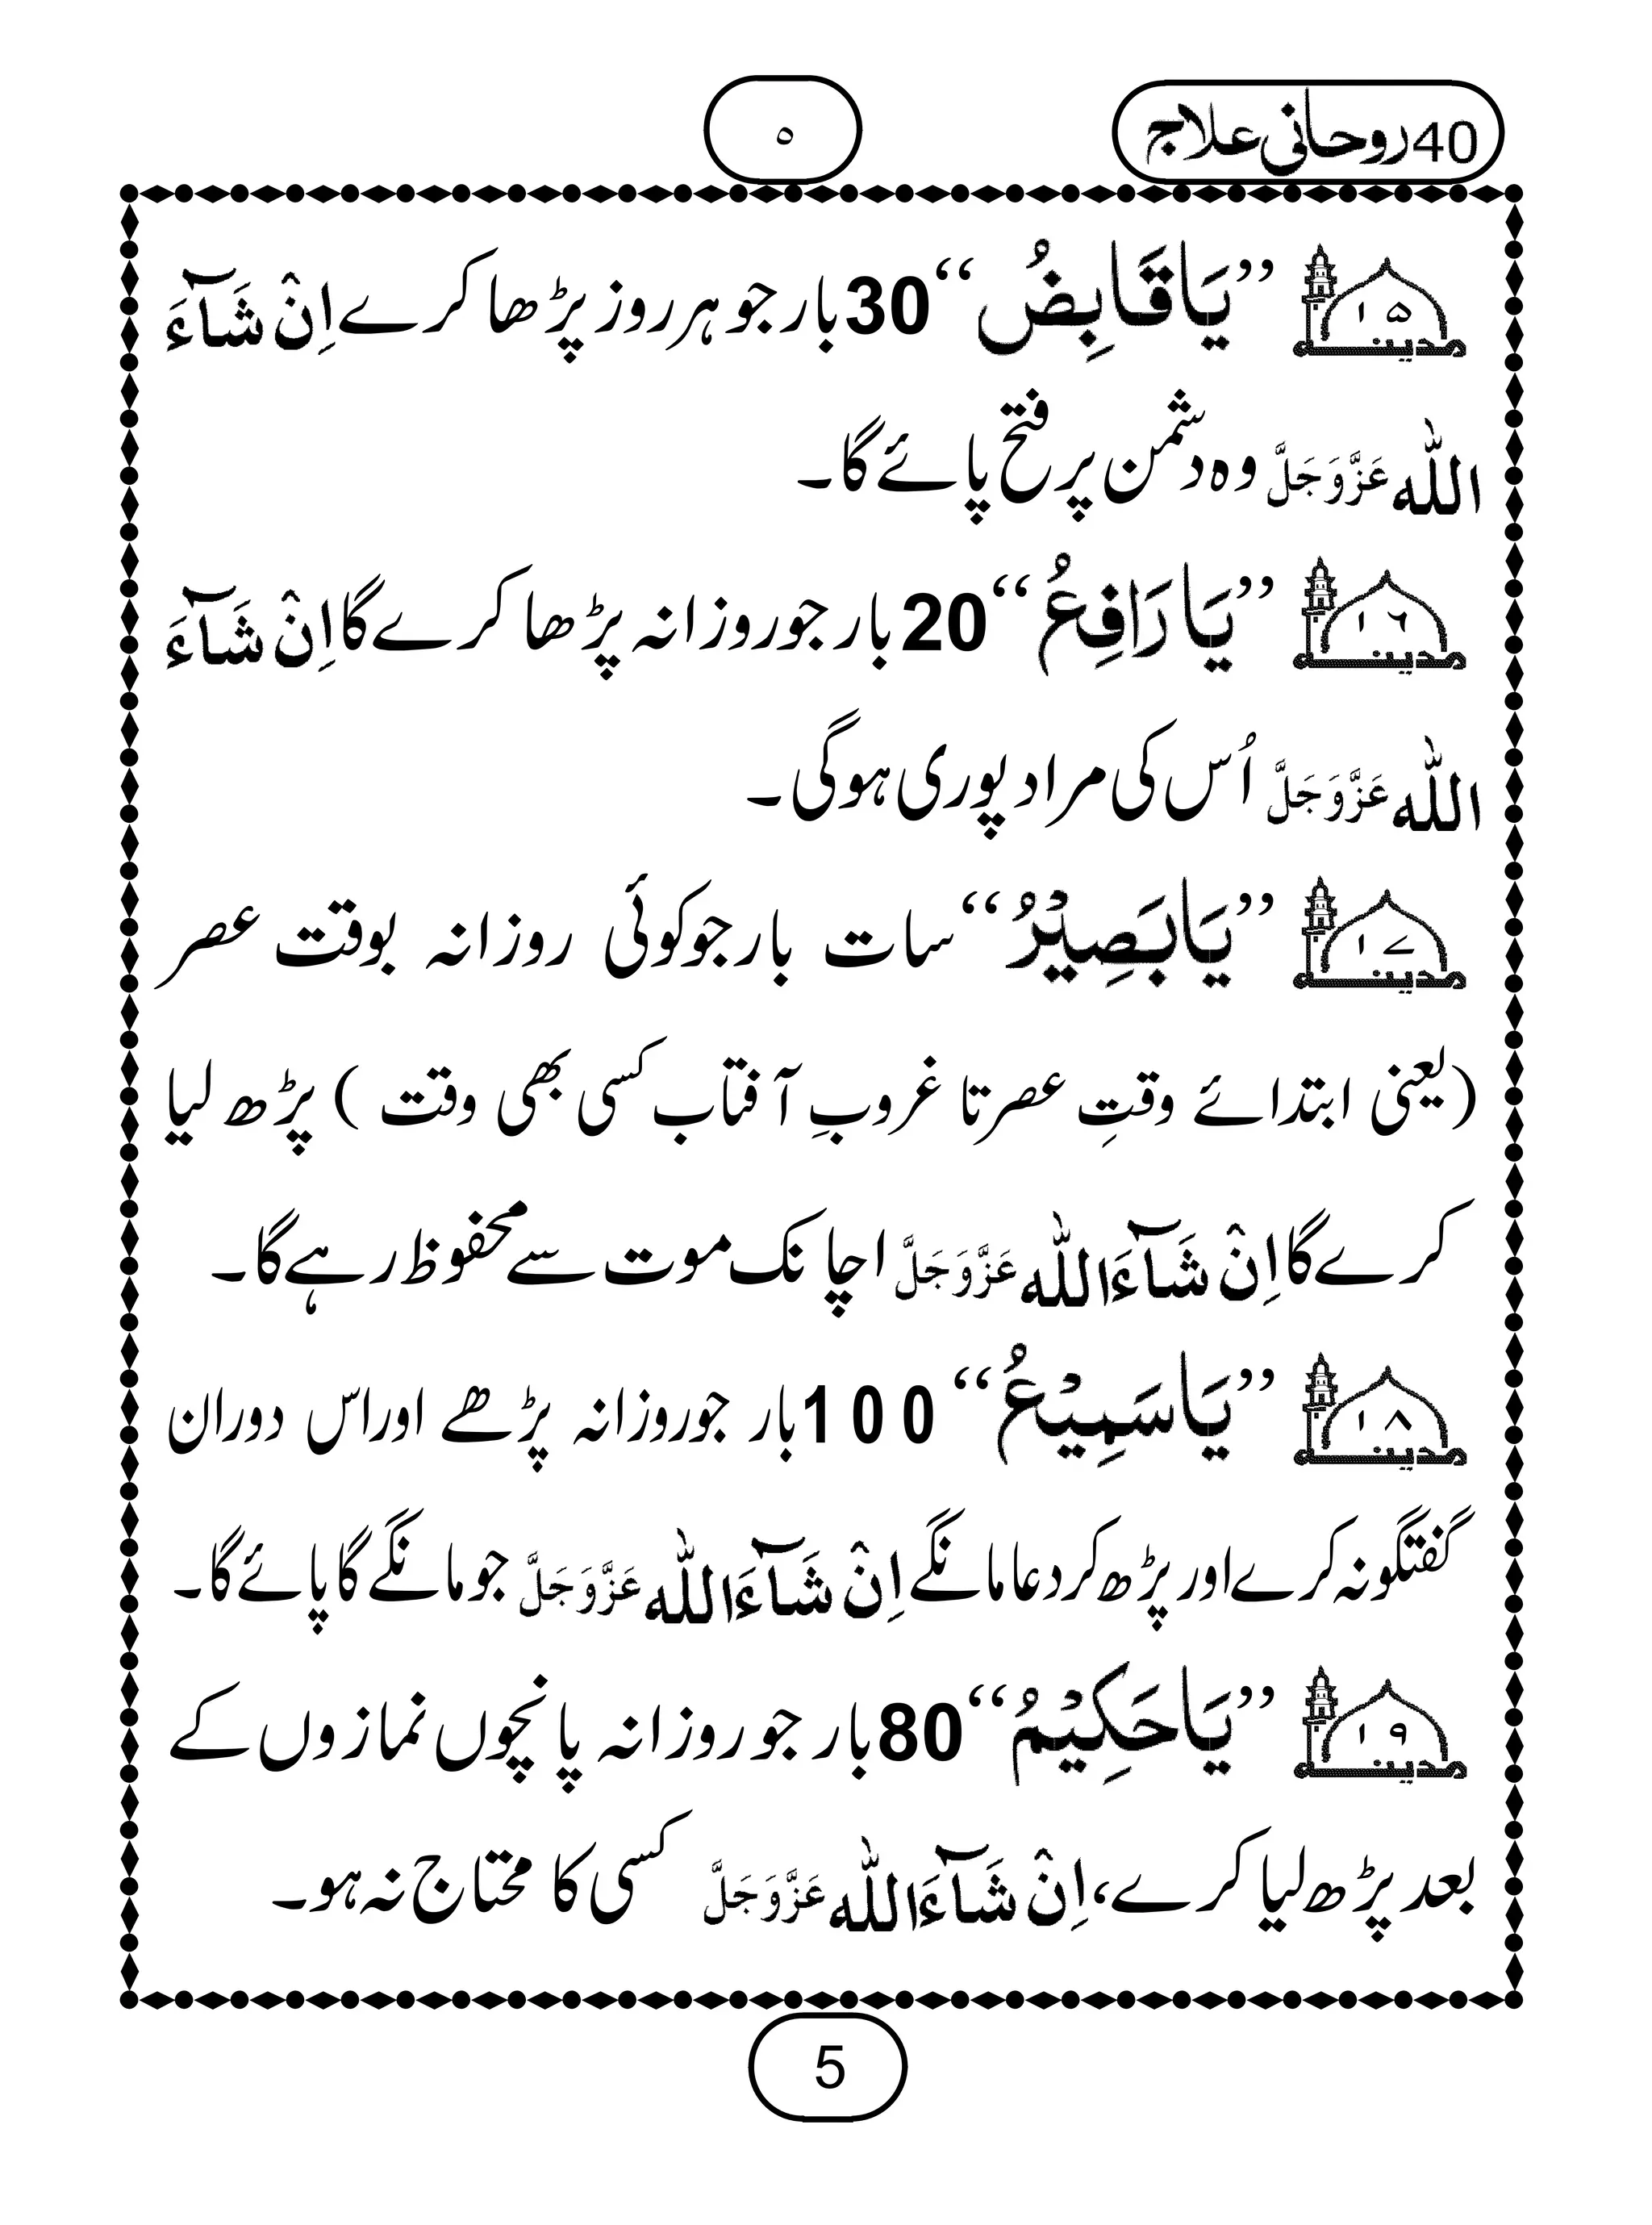 40روحانی علاج
۵
مدینہ ۱۵ ’’یَاقَابِضُ‘‘ 30 بار جو ہر روز پڑھا کرے اِنْ شَآءَ
اللہ عَزَّوَجَلَّ وہ دشمن پر فتح پائے گا۔
مدینہ ۱۶ ’’یَا رَافِعُ‘‘ 20 بار جو روزانہ پڑھا کرے گا اِنْ شَآءَ
اللہ عَزَّوَجَلَّ اُس کی مراد پوری ہوگی۔
مدینہ ۱۷ ’’یَابَصِیْرُ‘‘ سات بار جو کوئی روزانہ بوقت عصر
(یعنی ابتدائے وقتِ عصر تا غروبِ آفتاب کسی بھی وقت ) پڑھ لیا
کرے گا اِنْ شَآءَ اللہ عَزَّوَجَلَّ اچانک موت سے محفوظ رہے گا۔
مدینہ ۱۸ ’’یَاسَمِیْعُ‘‘ 100 بار جو روزانہ پڑھے اور اس دوران
گفتگو نہ کرے اور پڑھ کر دعا مانگے اِنْ شَآءَ اللہ عَزَّوَجَلَّ جو مانگے گا پائے گا۔
مدینہ ۱۹ ’’یَاحَکِیْمُ‘‘ 80 بار جو روزانہ پانچوں نمازوں کے
بعد پڑھ لیا کرے، اِنْ شَآءَ اللہ عَزَّوَجَلَّ کسی کا محتاج نہ ہو۔
5